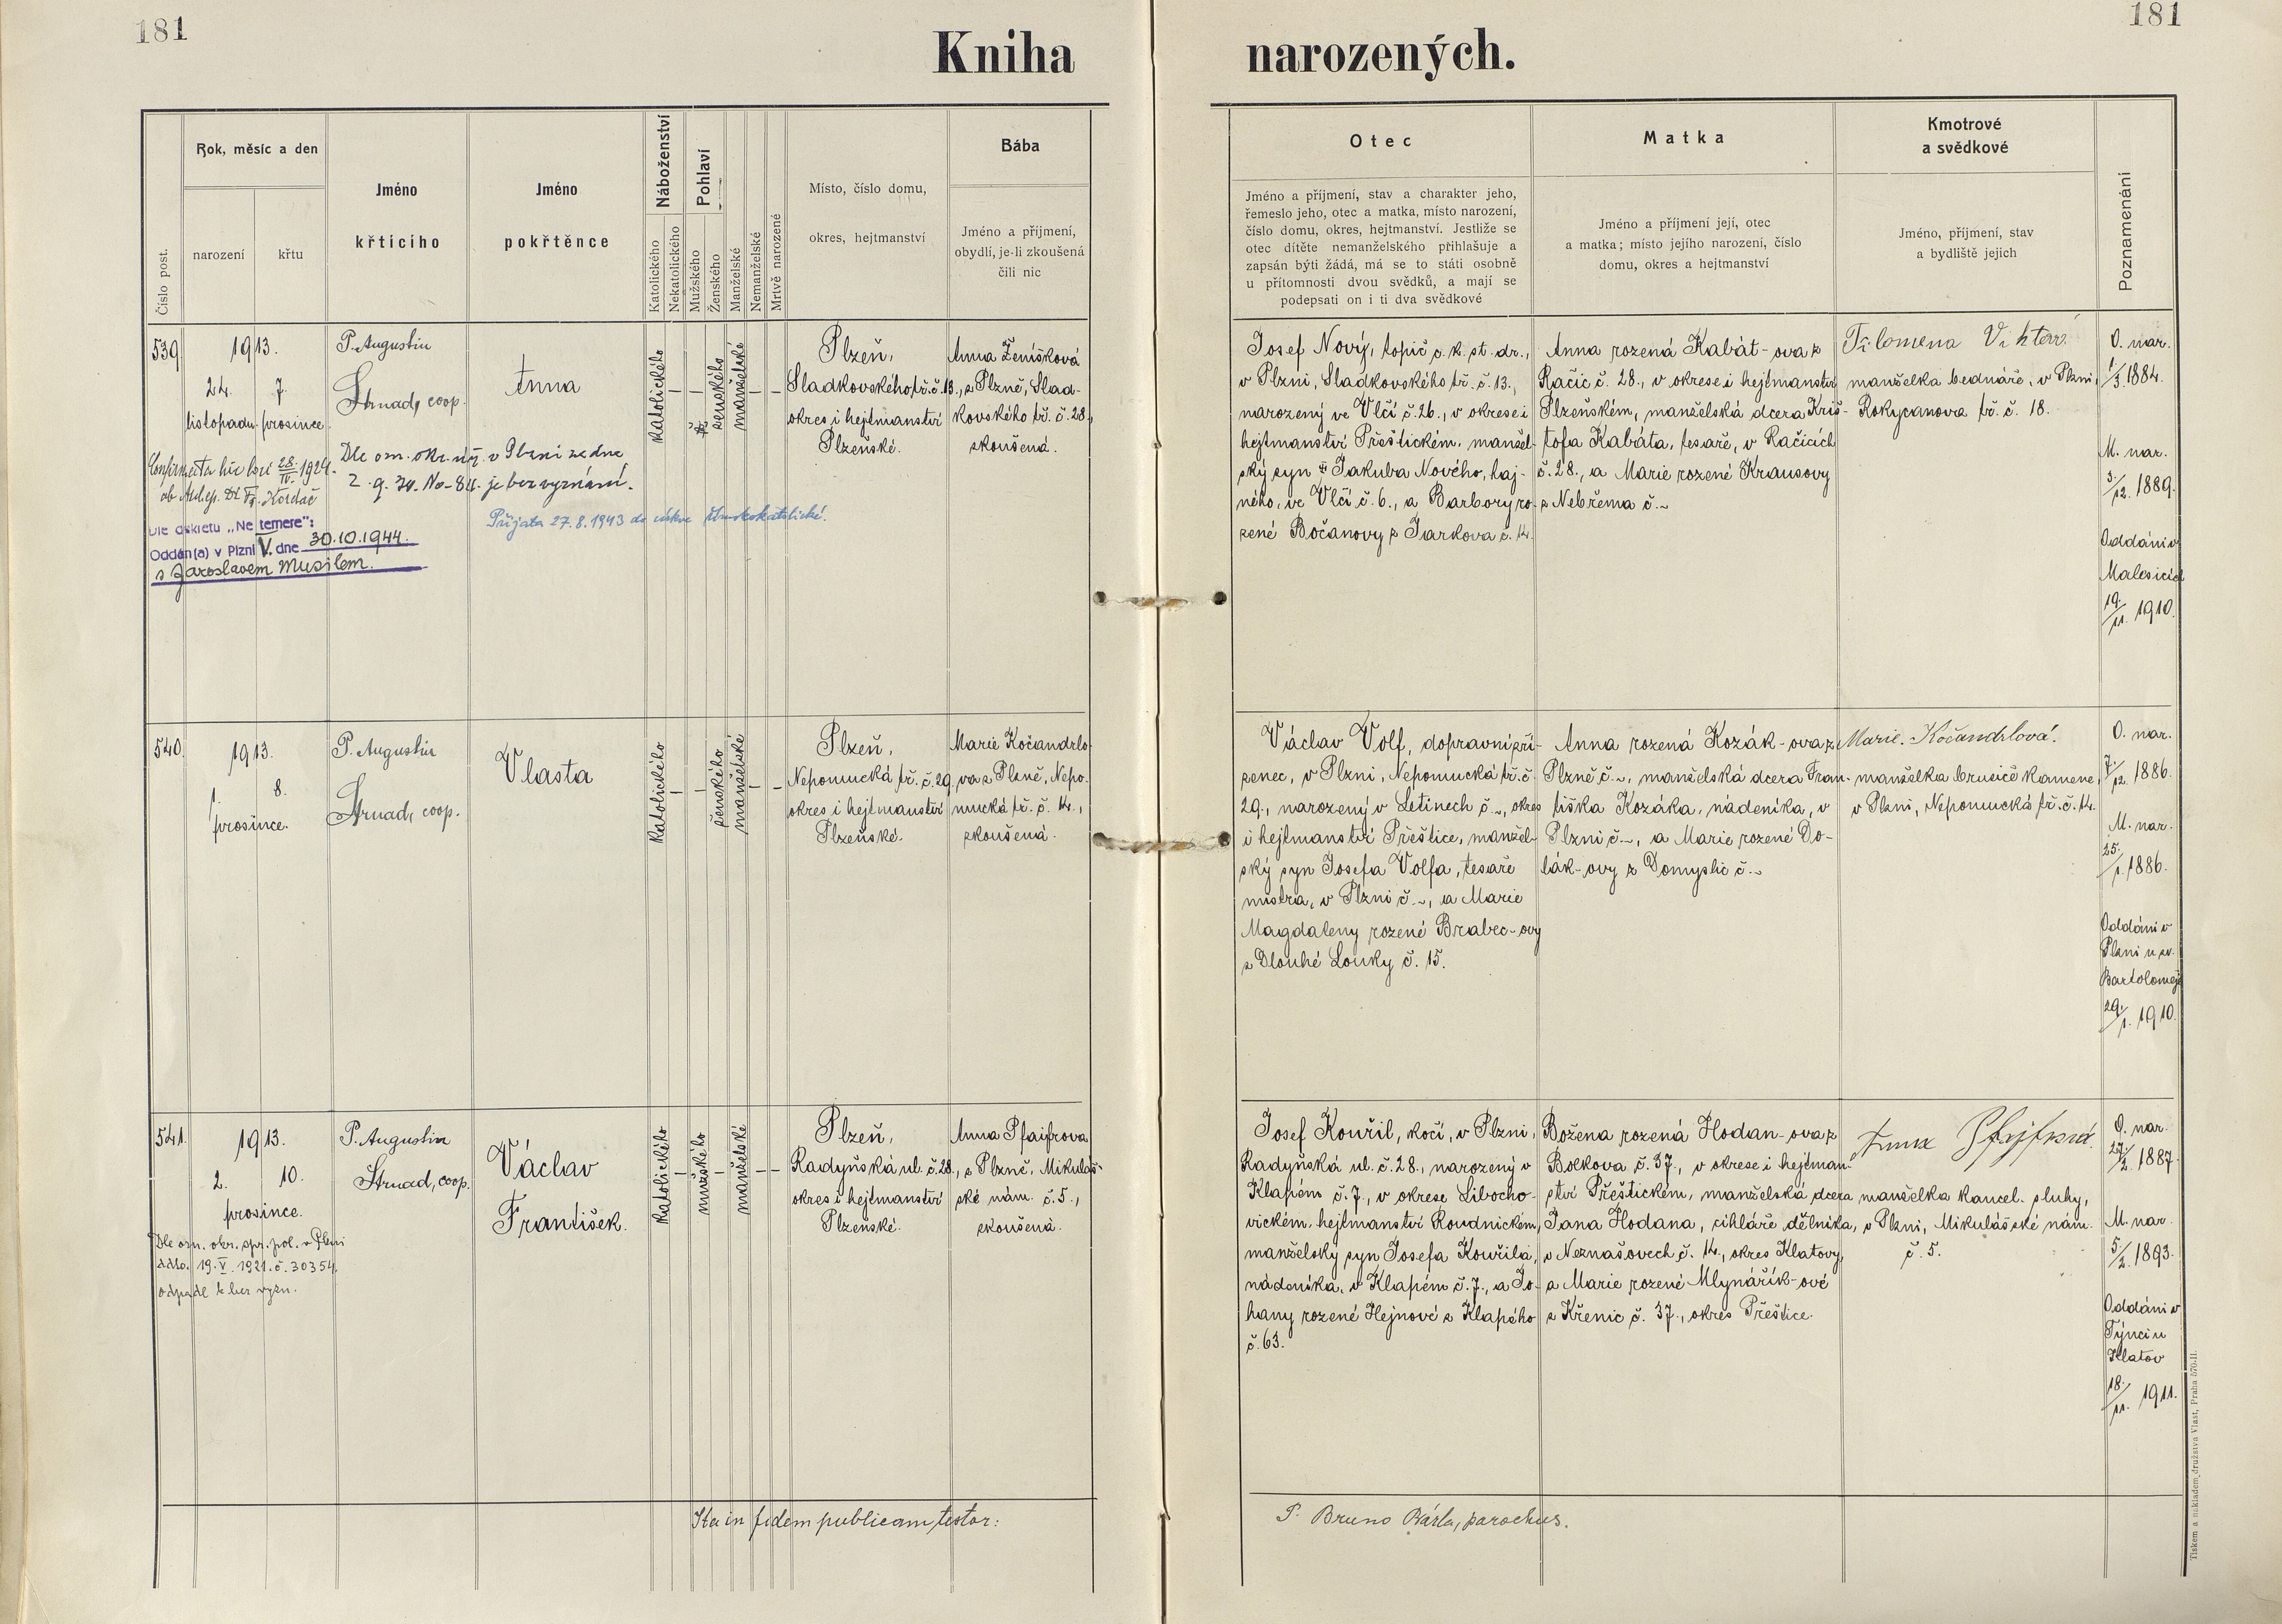 181
181
Kniha narozených.
Číslo post.
Rok, měsíc a den
narození
křtu
Jméno
křticího
Jméno
pokřtěnce
Náboženství
Katolického
Nekatolického
Pohlaví
Mužského
Ženského
Manželské
Nemanželské
Mrtvě narozené
Místo, číslo domu,
okres, hejtmanství
Bába
Jméno a příjmení,
obydlí, je-li zkoušená
čili nic
Otec
Jméno a příjmení, stav a charakter jeho,
řemeslo jeho, otec a matka, místo narození,
číslo domu, okres, hejtmanství. Jestliže se
otec dítěte nemanželského přihlašuje a
zapsán býti žádá, má se to státi osobně
u přítomnosti dvou svědků, a mají se
podepsati on i ti dva svědkové
Matka
Jméno a příjmení její, otec
a matka; místo jejího narození, číslo
domu, okres a hejtmanství
Kmotrové
a svědkové
Jméno, příjmení, stav
a bydliště jejich
Poznamenání
539.
1913.
24. 7.
listopadu prosince
P. Augustin
Strnad, coop.
Anna
katolického
ženského
manželské
Plzeň,
Sladkovského tř. č. 13.,
okres i hejtmanství
Plzeňské.
Anna Ženíšková
z Plzně, Slad-
kovského tř. č. 28.,
zkoušená.
Josef Nový, topič c. k. st. dr.,
v Plzni, Sladkovského tř. č. 13.,
narozený ve Vlčí č. 26., v okrese i
hejtmanství Přeštickém, manžel-
ský syn Jakuba Nového, haj-
ného, ve Vlčí č. 6., a Barbory ro-
zené Bočanovy z Jarkova č. 14.
Anna rozená Kabát-ova z
Račic č. 28., v okrese i hejtmanství
Plzeňském, manželská dcera Kriš-
tofa Kabáta, tesaře, v Račicích
č. 28., a Marie rozené Krausovy
z Nebřema č. ~
Filomena
manželka bednáře, v Plzni,
Rokycanova tř. č. 18.
O. nar.
1/3. 1884.
M. nar.
3/12. 1889.
Oddáni v
Malesicích
19./11. 1910.
Confirmata hic loci 28./IV. 1924.
ab Archep. Dr Fr. Kordač
Dle ozn. okr. úř. v Plzni ze dne
je bez vyznání.
Přijata 27.8.1943 do církve římskokatolické.
Dle dekretu „Ne temere":
Oddán(a) v Plzni V. dne 30.10.1944.
s Jaroslavem Musilem.
540.
1913.
1. 8.
prosince.
P. Augustin
Strnad, coop.
Vlasta
katolického
ženského
manželské
Plzeň,
Nepomucká tř. č. 29,
okres i hejtmanství
Plzeňské.
Marie Kočandrlo-
va z Plzně, Nepo-
mucká tř. č. 14.,
zkoušená.
Václav Volf, dopravní zří-
zenec, v Plzni, Nepomucká tř. č.
29., narozený v Letinech č. ~, okres
i hejtmanství Přeštice, manžel-
ský syn Josefa Volfa, tesaře
mistra, v Plzni č. ~, a Marie
Magdaleny rozené Brabec-ovy
z Dlouhé Louky č. 15.
Anna rozená Kozák-ova z
Plzně č. ~, manželská dcera Fran-
tiška Kozáka, nádeníka, v
Plzni č. ~, a Marie rozené Do-
lák-ovy z Domyslic č. ~
Marie Kočandrlová.
manželka brusiče kamene,
v Plzni, Nepomucká tř. č. 14.
O. nar.
7/12. 1886.
M. nar.
25./1. 1886.
Oddáni v
Plzni u sv.
Bartoloměje
29./1. 1910.
541.
1913.
2. 10.
prosince.
P. Augustin
Strnad, coop.
Václav
František.
katolického
mužského
manželské
Plzeň,
Radyňská ul. č. 28.,
okres i hejtmanství
Plzeňské.
Anna Pfajfrova
z Plzně, Mikuláš-
ské nám. č. 5.,
zkoušená.
Josef Kouřil, kočí, v Plzni,
Radyňská ul. č. 28., narozený v
Klapém č. 7., v okrese Libocho-
vickém, hejtmanství Roudnickém,
manželský syn Josefa Kouřila,
nádeníka, v Klapém č. 7., a Jo-
hany rozené Hejnové z Klapého
č. 63.
Božena rozená Hodan-ova z
Bolkova č. 37., v okrese i hejtman-
ství Přeštickém, manželská dcera
Jana Hodana, cihláře dělníka,
v Neznašovech č. 14., okres Klatovy,
a Marie rozené Mlynářík-ové
z Křenic č. 37., okres Přeštice.
Anna Pfejfrová.
manželka kancel. sluhy,
v Plzni, Mikulášské nám.
č. 5.
O. nar.
27/2. 1887.
M. nar.
5/2. 1893.
Oddáni v
Týnci u
Klatov
18./11. 1911.
Dle ozn. okr. spr. pol. v Plzni
ddto. 19.V.1921. č. 30354.
odpadl k bez vyzn.
Ita in fidem publicam testor:
P. Bruno Bárta, parochus.
Tiskem a nákladem družstva Vlast, Praha 570-II.